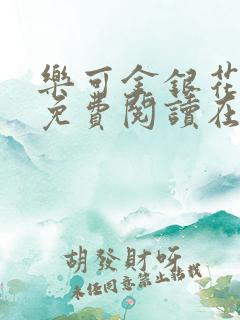 樂可金銀花
免費閱讀在
胡發財呀
未經同意禁止轉載